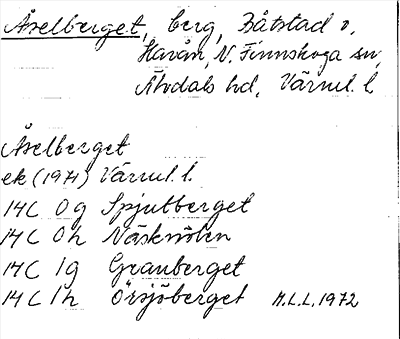 Åselberget, berg, Båtstad o.
Havån, N. Finnskoga sn,
Älvdals hd, Värml. l.
Åselberget
ek (1971) Värml. l.
14C 0g Spjutberget
14C 0h Näsknölen
14C 1g Granberget
14C 1h Örsjöberget M.L.L. 1972